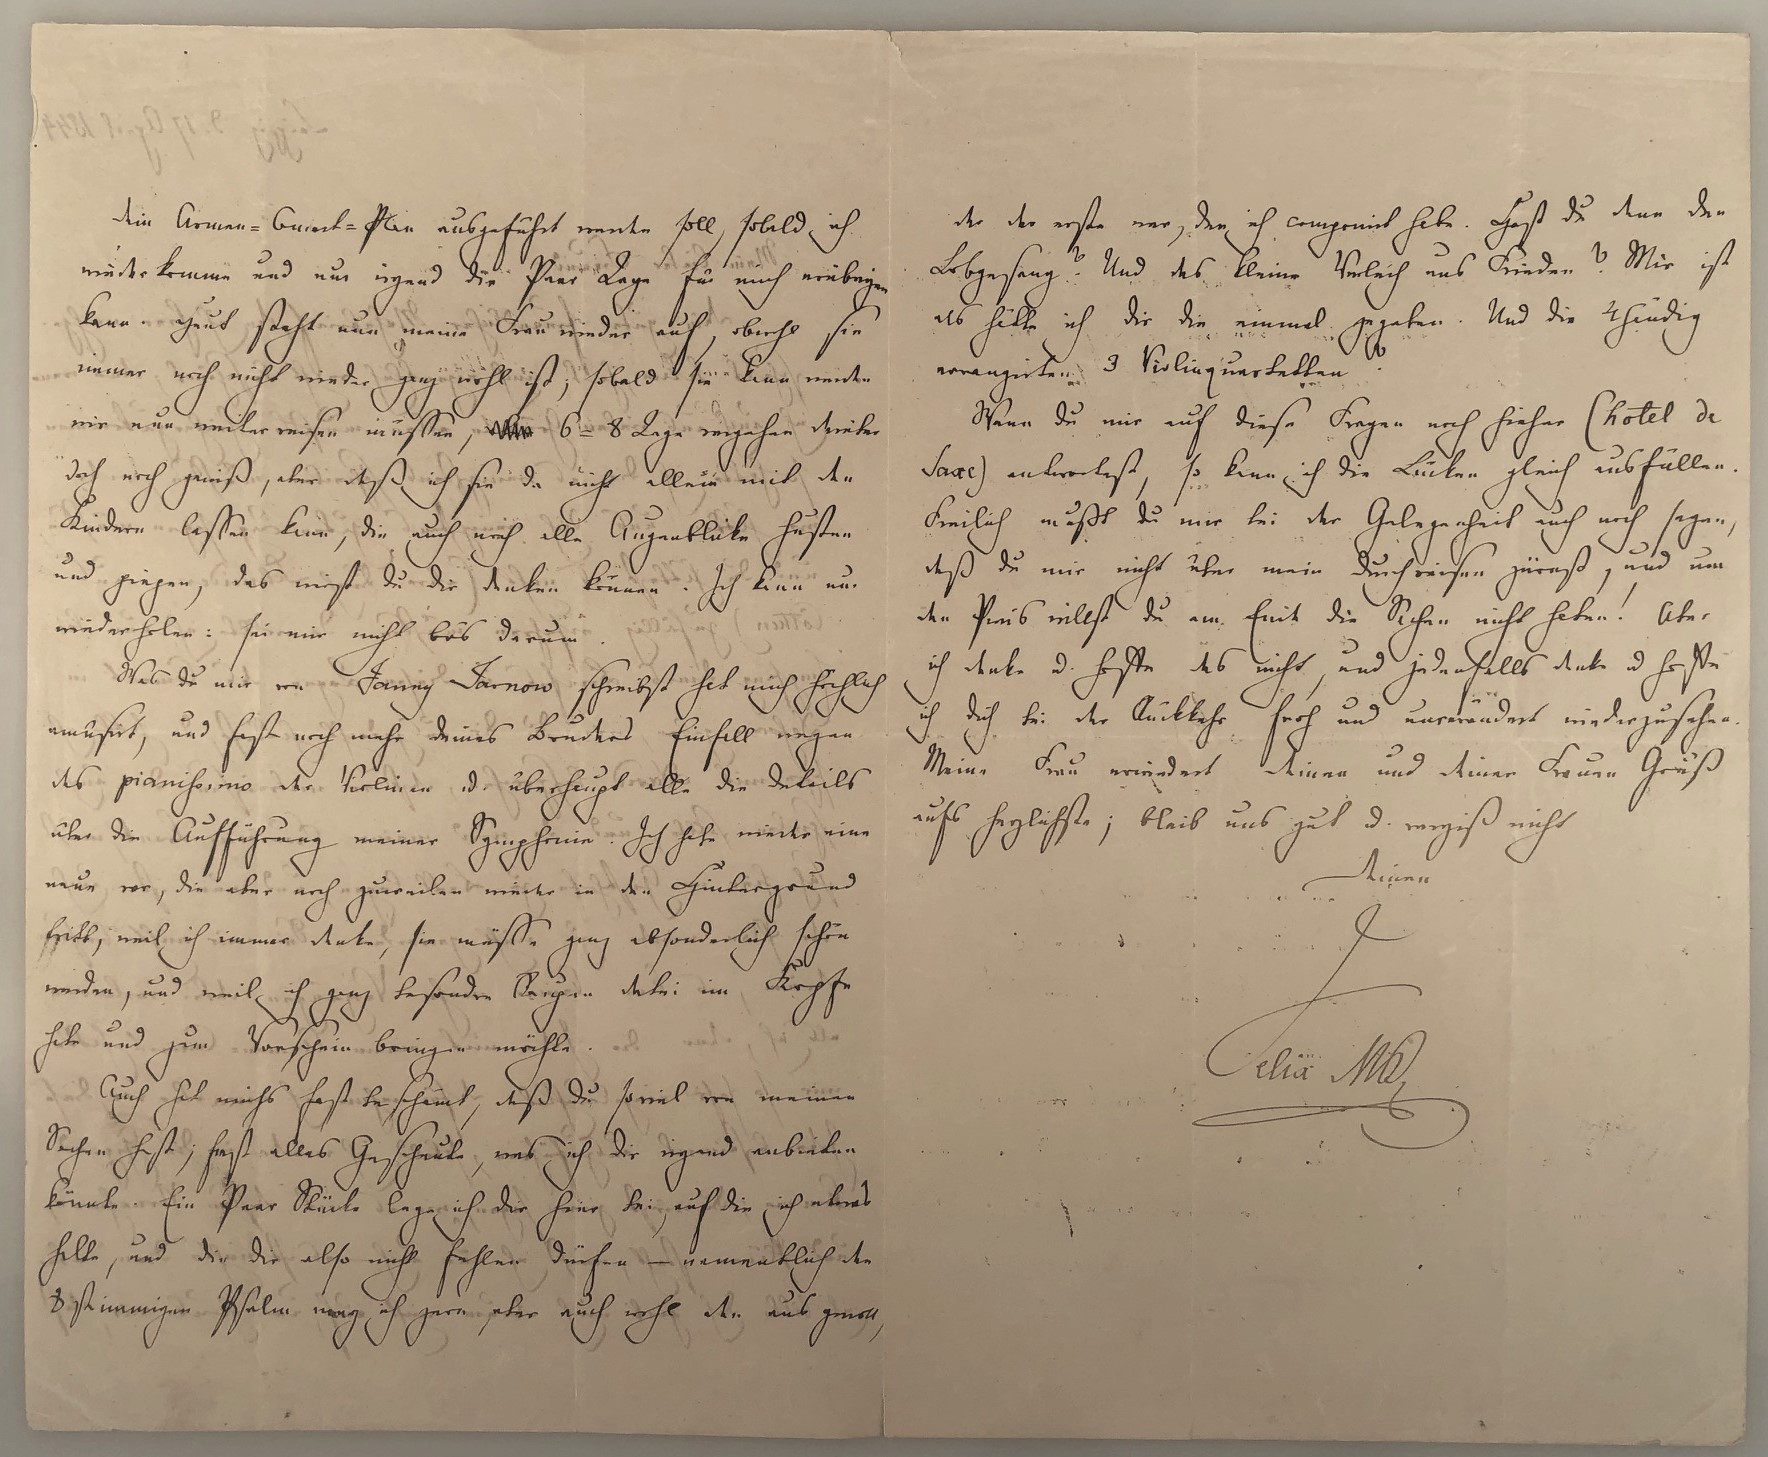 dein Armen=Concert=Plan ausgeführt werden soll, sobald ich
wiederkomme und nur irgend die Paar Tage für mich erübrigen
kann. Heut steht nun meine Frau wieder auf, obwohl sie
immer noch nicht wieder ganz wohl ist; sobald sie kann werden
wir nun weiter reisen müssen, 6=8 Tage vergehen darüber
doch noch gewiß, aber daß ich sie da nicht allein mit den
Kindern lassen kann, die auch noch alle Augenblicke husten
und piepen, das wirst du dir denken können. Ich kann nur
wiederholen: sei mir nicht bös darum.
Was du mir von Fanny Tarnow schreibst hat mich höchlich
amüsirt, und fast noch mehr deines Bruders Einfall wegen
des pianissimo der Violinen u. überhaupt alle die Details
über die Aufführung meiner Symphonie. Ich habe wieder eine
neue vor, die aber noch zuweilen wieder in den Hintergrund
tritt, weil ich immer denke, sie müsse ganz absonderlich schön
werden, und weil ich ganz besondre Raupen dabei im Kopfe
habe und zum Vorschein bringen möchte.
Auch hat michs fast beschämt, daß du soviel von meinen
Sachen hast; fast alles Geschenke, was ich dir irgend anbieten
könnte. Ein Paar Stücke lege ich dir hier bei, auf die ich etwas
halte, und die dir also nicht fehlen dürfen — namentlich den
8stimmigen Psalm mag ich gern aber auch wohl den aus gmoll,
der der erste war, den ich componirt habe. Hast du denn den
Lobgesang? Und das kleine Verleih uns Frieden? Mir ist
als hätte ich dir die einmal gegeben. Und die 4händig
arrangirten 3 Violinquartetten?
Wenn du mir auf diese Fragen noch hieher (hôtel de
Saxe) antwortest, so kann ich die Lücken gleich ausfüllen.
Freilich mußt du mir bei der Gelegenheit auch noch sagen,
daß du mir nicht über mein Durchreisen zürnst, und um
den Preis willst du am Ende die Sachen nicht haben! Aber
ich denke u. hoffe das nicht, und jedenfalls denke u hoffe
ich dich bei der Rückkehr froh und unverändert wiederzusehen.
Meine Frau erwiedert deinen und deiner Frauen Gruß
aufs herzlichste; bleib uns gut u. vergiß nicht
deinen
Felix MB